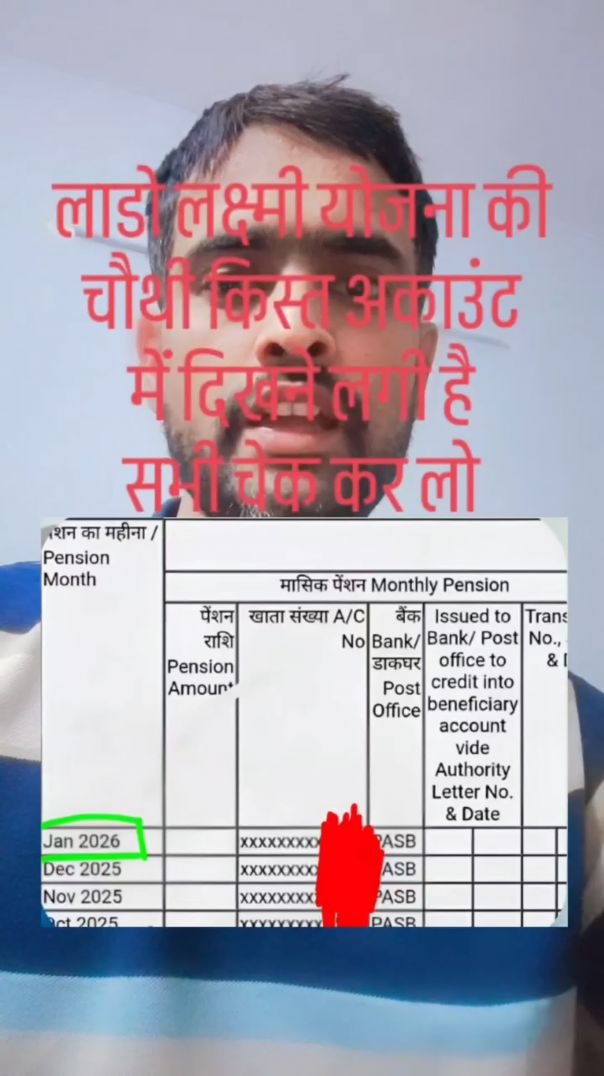 लाडो लक्ष्मी योजना की
चौथी किस्त अकाउंट
में दिखने लगी है
सभी चेक कर लो
पेंशन का महीना /
Pension
Month
मासिक पेंशन Monthly Pension
पेंशन
राशि
Pension
Amount
खाता संख्या A/C
No
बैंक
Bank/
डाकघर
Post
Office
Issued to
Bank/ Post
office to
credit into
beneficiary
account
vide
Authority
Letter No.
& Date
Trans
No.,
&
Jan 2026 xxxxxxxxx PASB
Dec 2025 xxxxxxxxx PASB
Nov 2025 xxxxxxxxx PASB
Oct 2025 xxxxxxxxx PASB